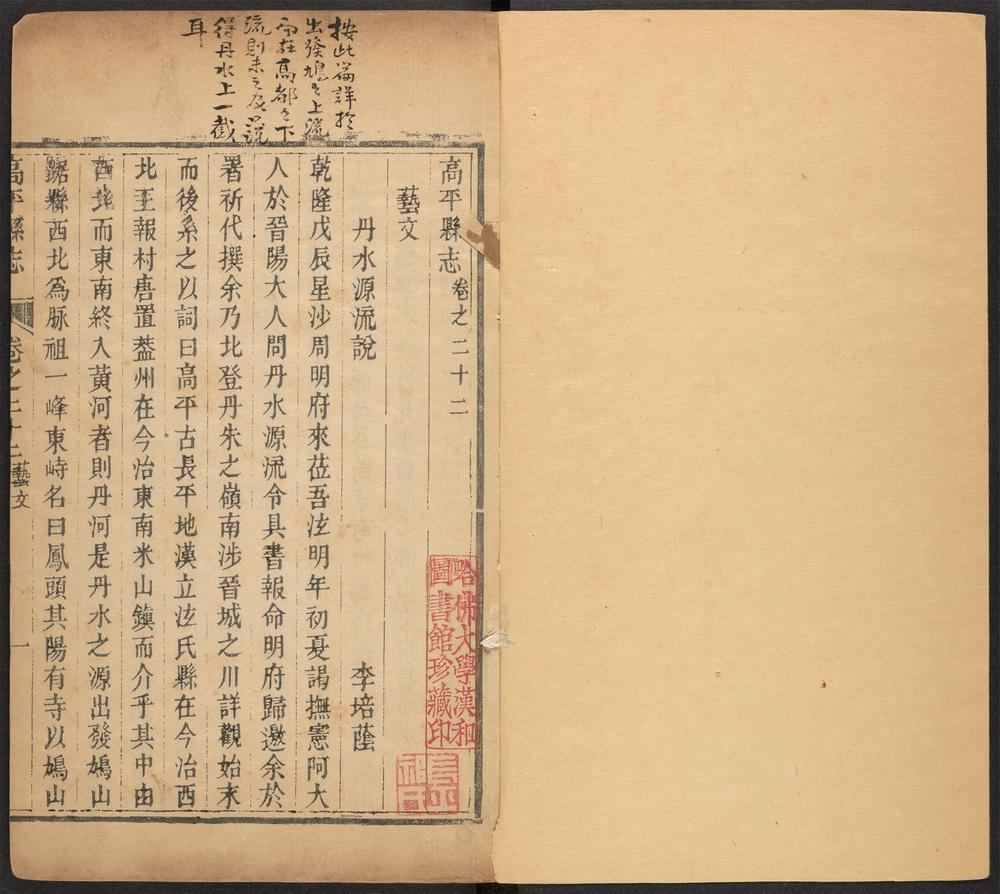 按此篇詳於
出發鳩之上流
而在高都之下
流則未之及只說
得丹水上一截
耳
高平縣志卷之二十二
藝文
丹水源流說 李培蔭
乾隆戊辰星沙周明府來莅吾泫明年初夏謁撫憲阿大
人於晉陽大人問丹水源流令具書報命明府歸邀余於
署祈代撰余乃北登丹朱之嶺南涉晉城之川詳觀始末
而後系之以詞曰高平古長平地漢立泫氏縣在今治西
北王報村唐置葢州在今治東南米山鎮而介乎其中由
西北而東南終入黃河者則丹河是丹水之源出發鳩山
踞縣西北爲脉祖一峰東峙名曰鳳頭其陽有寺以鳩山
高平縣志 卷之二十二 藝文 一
哈佛大學漢和
圖書館珍藏印